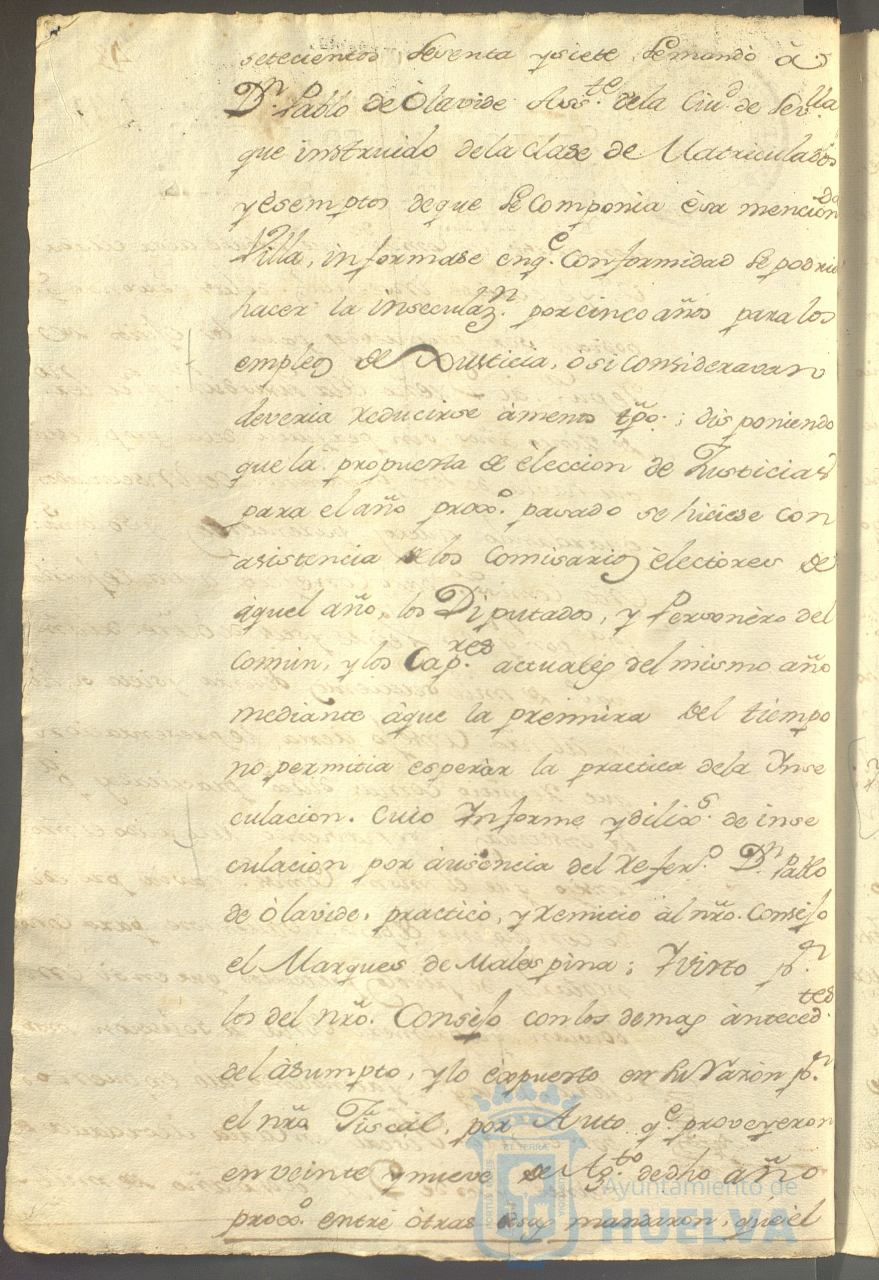 setecientos sesenta y siete se mandò à
Dn. Pablo de Olavide Asste. de la Ciud de Sevlla
que instruido de la clase de Matriculados
y èsemptos de que se componia èsa mencionda
Villa, informase en qe. conformidad se podria
hacer la inseculazn. por cinco años para los
empleos de Justicia, ò si consideravan
deveria reducirse à menos tpõ.; disponiendo
que la propuesta de eleccion de Justicias
para el año proxo. pasado se hiciese con
asistencia de los Comisarios electores de
àquel año, los Diputados, y Personèro del
Comun, y los Capres. actuales del mismo año
mediante àque la premura del tiempo
no permitia esperàr la practica dela Inse
culacion. Cuio Informe y dilixs. de inse
culacion por àusencia del refero. Dn. Pablo
de Olavide, practicò, y remitiò àl nrõ. Consejo
el Marques de Malespina; Y visto pr.
los del nrõ. Consejo con los demas àntecedtes.
del àsumpto, y lo èxpuesto en su razòn pr.
el nrõ Fiscal, por Auto qe. proveyeron
en veinte y nueve de Agto. de dho año
proxo. entre òtras cosas mandaron, que èl
Ayuntamiento de
HUELVA